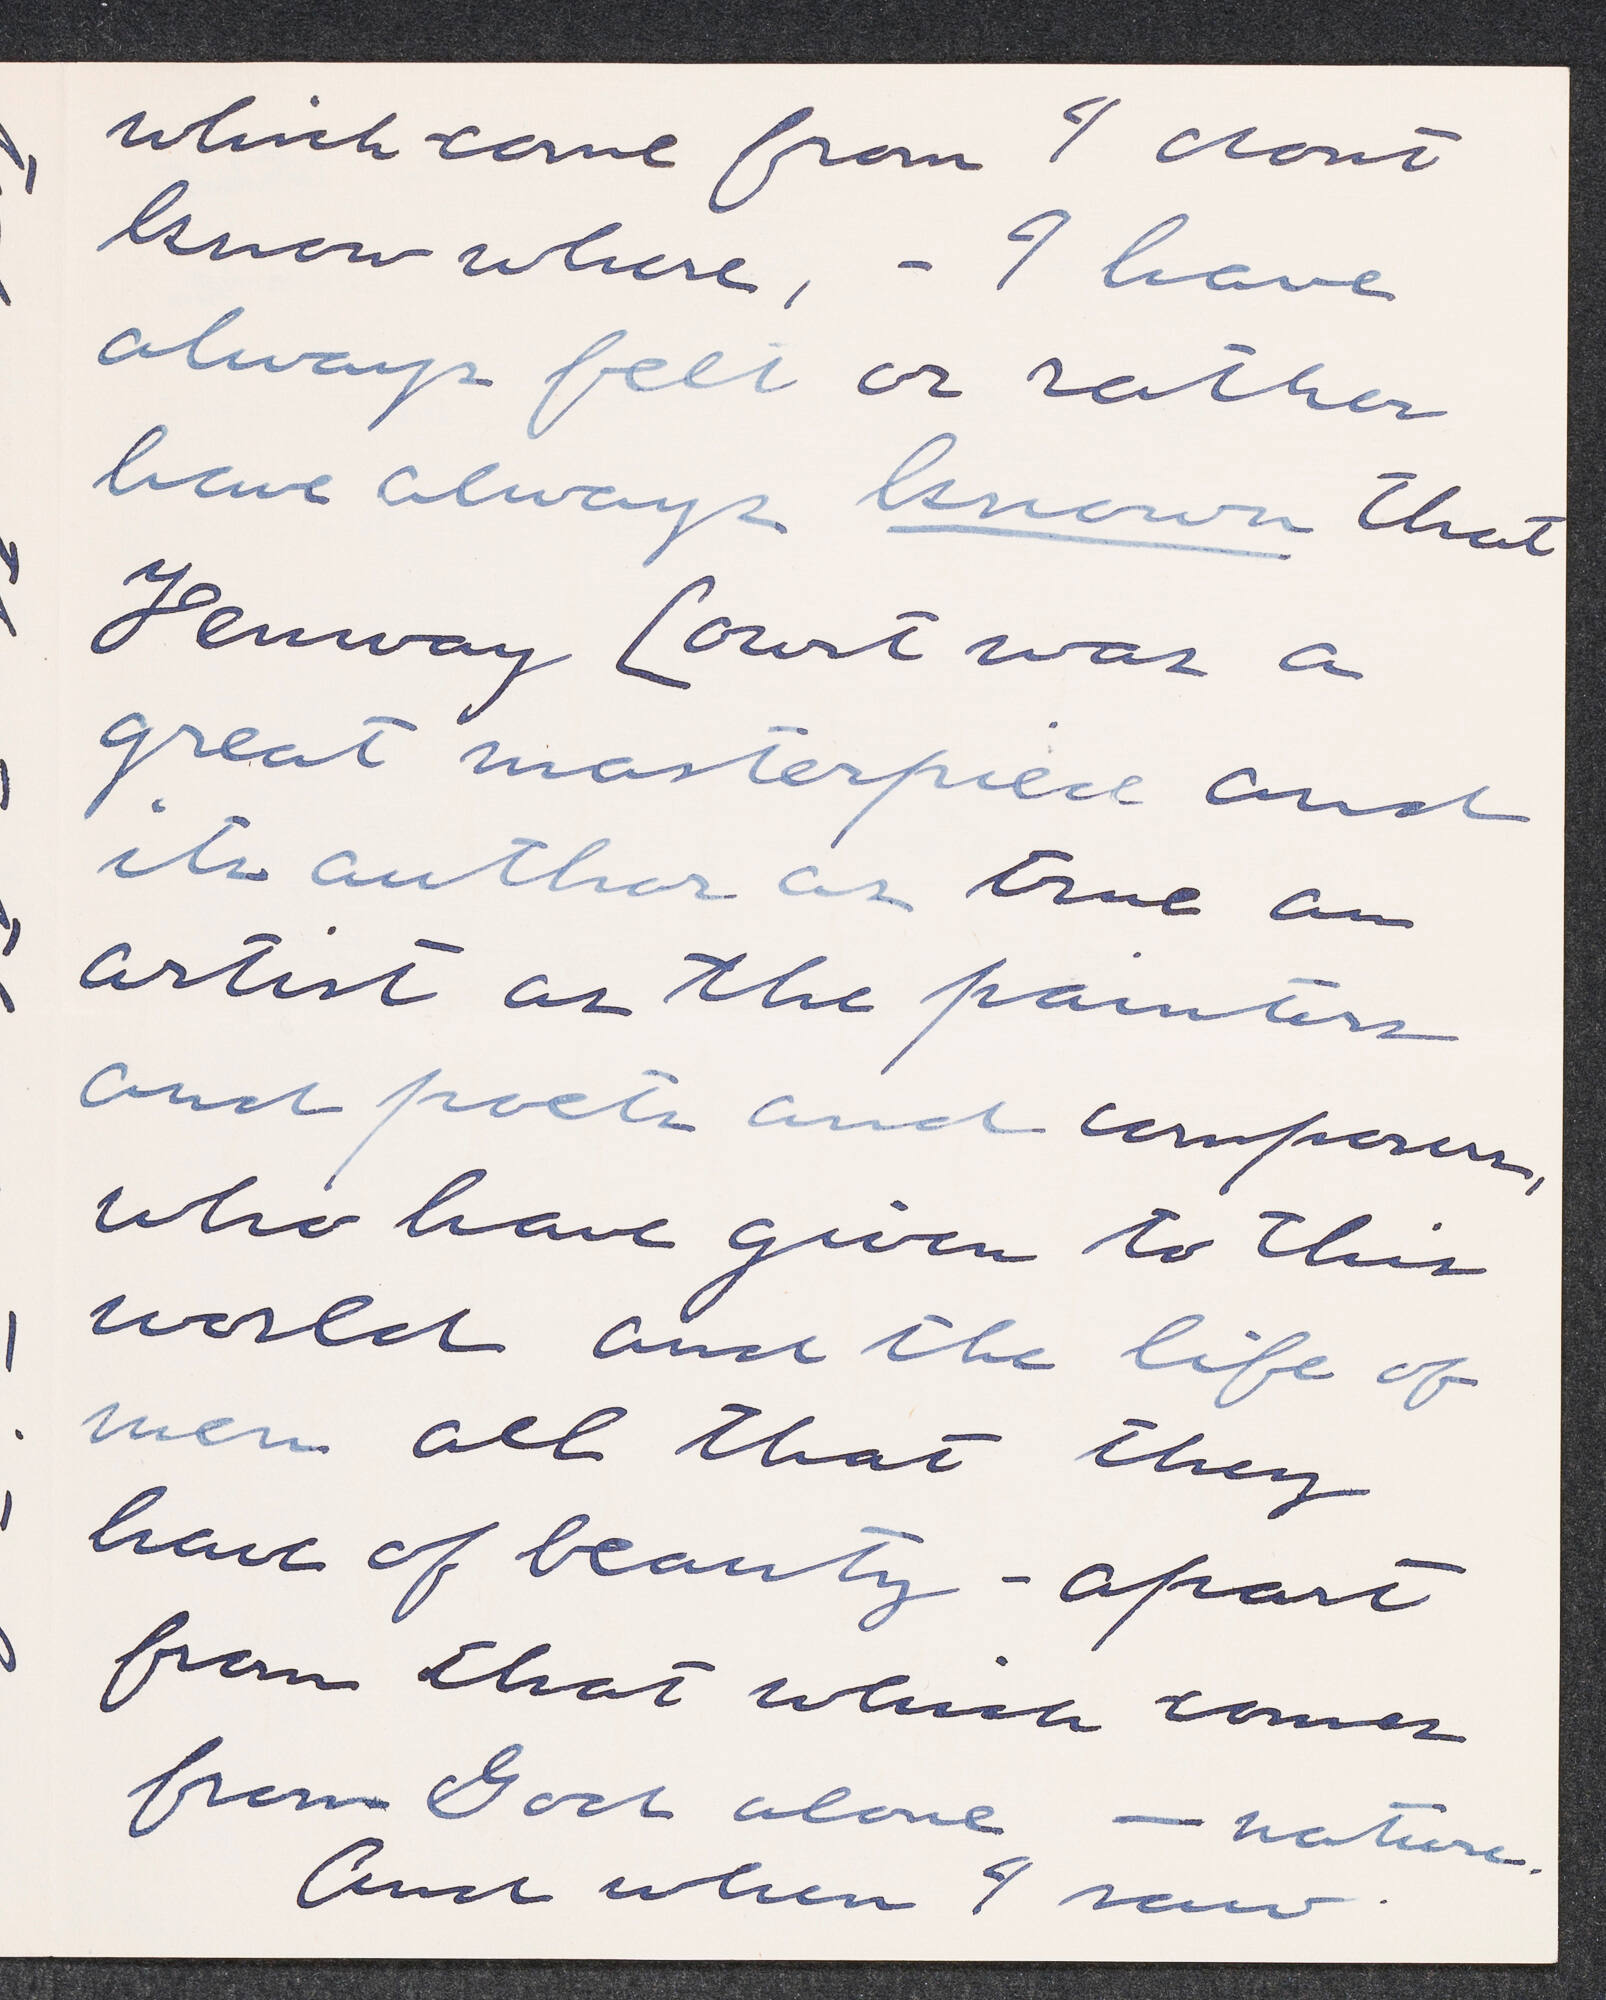 which come from I dont
know where, - I have
always felt or rather
have always known that
Fenway Court was a
great masterpiece and
its author as true an
artist as the painters
and poets and composers,
who have given to this
world and the life of
men all that they
have of beauty - apart
from that which comes
from God alone, - nature.
And when I saw